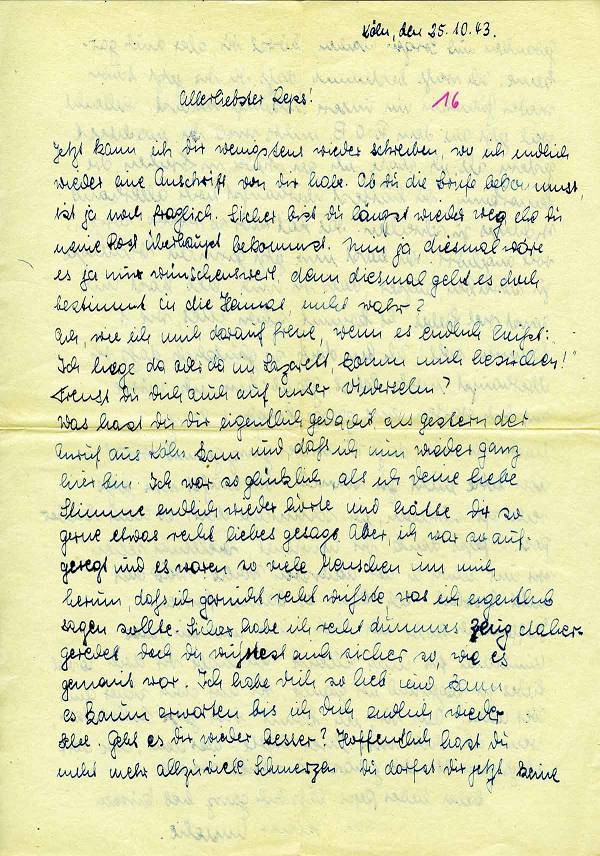 Köln, den 25.10.43.
Allerliebster Peps!
16
Jetzt kann ich Dir wenigstens wieder schreiben, wo ich endlich
wieder eine Anschrift von dir habe. Ob du die Briefe bekommst,
ist ja noch fraglich. Sicher bist du längst wieder weg ehe du
meine Post überhaupt bekommst. Nun ja diesmal wäre
es ja nur wünschenswert, denn diesmal geht es doch
bestimmt in die Heimat, nicht wahr?
Ach, wie ich mich darauf freue, wenn es endlich heißt:
Ich liege da oder da im Lazarett, komm mich besuchen!"
Freust Du dich auch auf unser Wiedersehn?
Was hast du dir eigentlich gedacht als gestern der
Anruf aus Köln kam und daß ich nun wieder ganz
hier bin. Ich war so glücklich als ich deine liebe
Stimme endlich wieder hörte und hätte Dir so
gerne etwas recht liebes gesagt. Aber, ich war so auf-
geregt und es waren so viele Menschen um mich
herum, daß ich garnicht recht wußte, was ich eigentlich
sagen sollte. Sicher habe ich recht dummes Zeug daher-
geredet, doch du wußtest auch sicher so, wie es
gemeint war. Ich habe dich so lieb und kann
es kaum erwarten bis ich dich endlich wieder
sehe. Geht es dir wieder besser? Hoffentlich hast du
nicht mehr allzuviele Schmerzen du darfst dir jetzt keine